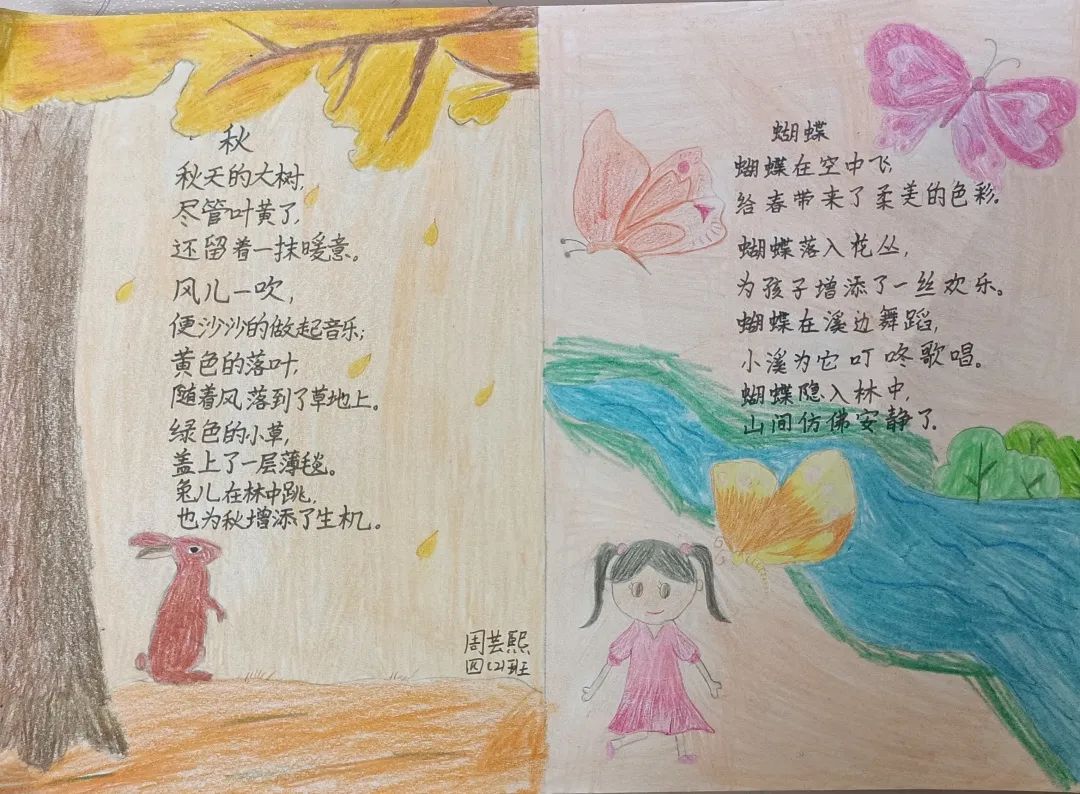 秋
秋天的大树,
尽管叶黄了,
还留着一抹暖意。
风儿一吹,
便沙沙的做起音乐;
黄色的落叶,
随着风落到了草地上。
绿色的小草,
盖上了一层薄毯。
兔儿在林中跳,
也为秋增添了生机。
周芸熙
四(2)班
蝴蝶
蝴蝶在空中飞,
给春带来了柔美的色彩。
蝴蝶落入花丛,
为孩子增添了一丝欢乐。
蝴蝶在溪边舞蹈,
小溪为它叮咚歌唱。
蝴蝶隐入林中,
山间仿佛安静了.